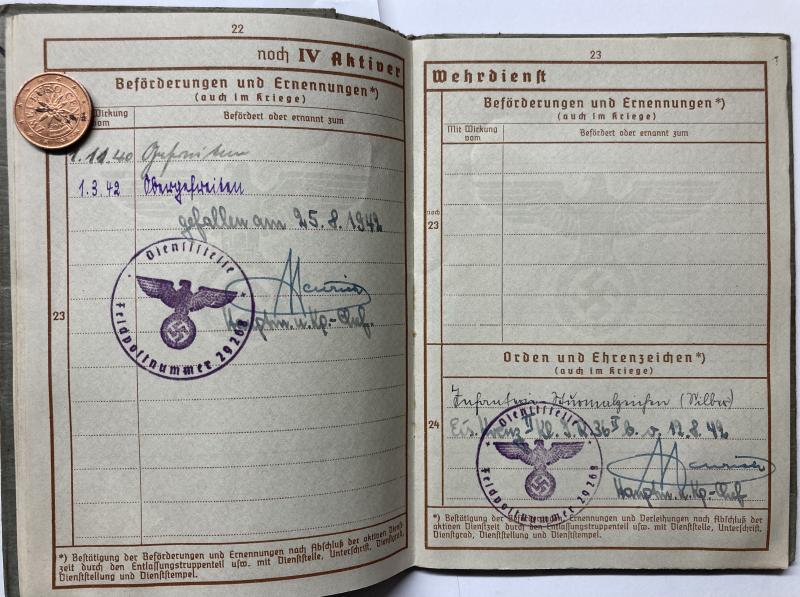 22
noch IV Aktiver
Beförderungen und Ernennungen*)
(auch im Kriege)
Wirkung
vom
Befördert oder ernannt zum
1.11.40 Gefreiten
1.3.42 Obergefreiten
gefallen am 25.8.1942
Dienststelle
Feldpostnummer 29268
Hauptm. u. Kp.-Chef.
23
*) Bestätigung der Beförderungen und Ernennungen nach Abschluß der aktiven Dienst-
zeit durch den Entlassungstruppenteil usw. mit Dienststelle, Unterschrift, Dienstgrad,
Dienststellung und Dienststempel.
23
Wehrdienst
Beförderungen und Ernennungen*)
(auch im Kriege)
Mit Wirkung
vom
Befördert oder ernannt zum
noch
23
Orden und Ehrenzeichen*)
(auch im Kriege)
Infanterie-Sturmabzeichen (Silber)
24
Eis. Kreuz II Kl. v. 12.8.42
Dienststelle
Feldpostnummer 29268
Hauptm. u. Kp.-Chef
*) Bestätigung der Ernennungen und Verleihungen nach Abschluß der
aktiven Dienstzeit durch den Entlassungstruppenteil usw. mit Dienststelle, Unterschrift,
Dienstgrad, Dienststellung und Dienststempel.